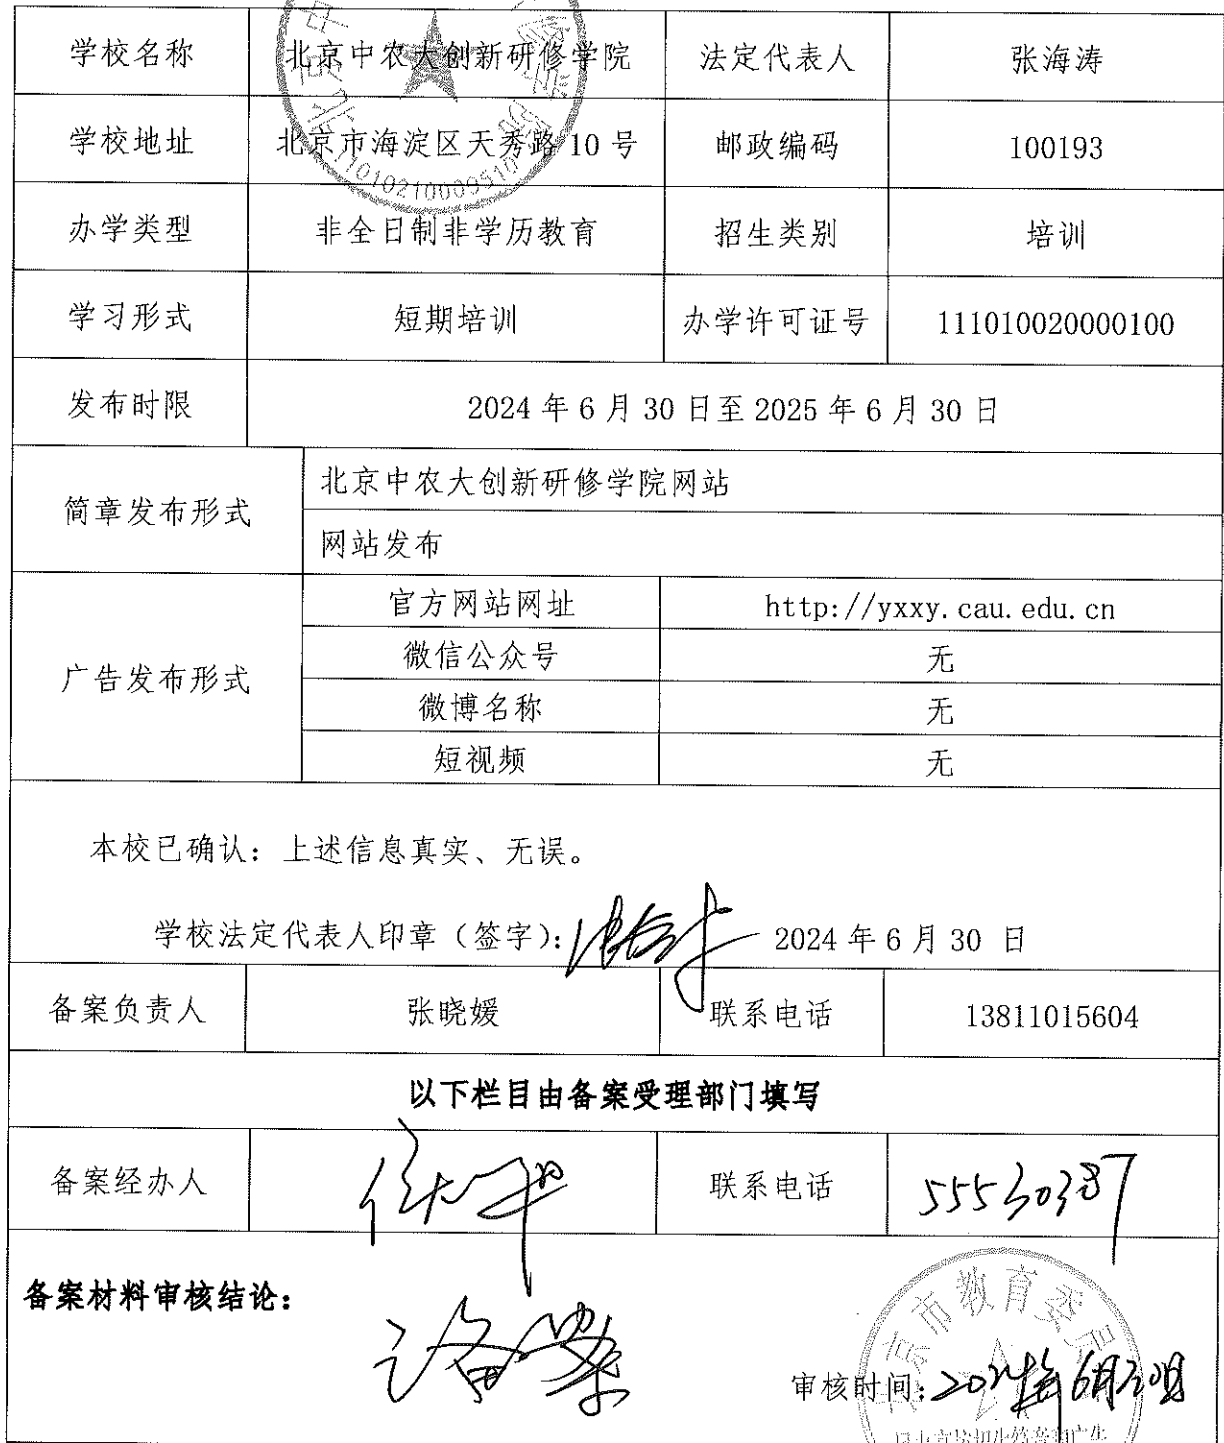 学校名称 北京中农大创新研修学院 法定代表人 张海涛
学校地址 北京市海淀区天秀路 10 号 邮政编码 100193
1101021000951
办学类型 非全日制非学历教育 招生类别 培训
学习形式 短期培训 办学许可证号 111010020000100
发布时限 2024 年 6 月 30 日至 2025 年 6 月 30 日
简章发布形式 北京中农大创新研修学院网站
网站发布
广告发布形式 官方网站网址 http://yxxy.cau.edu.cn
微信公众号 无
微博名称 无
短视频 无
本校已确认：上述信息真实、无误。
学校法定代表人印章（签字）： 2024 年 6 月 30 日
备案负责人 张晓媛 联系电话 13811015604
以下栏目由备案受理部门填写
备案经办人 联系电话 55530387
备案材料审核结论：
北京市教育委员
审核时间：2024年6月30日